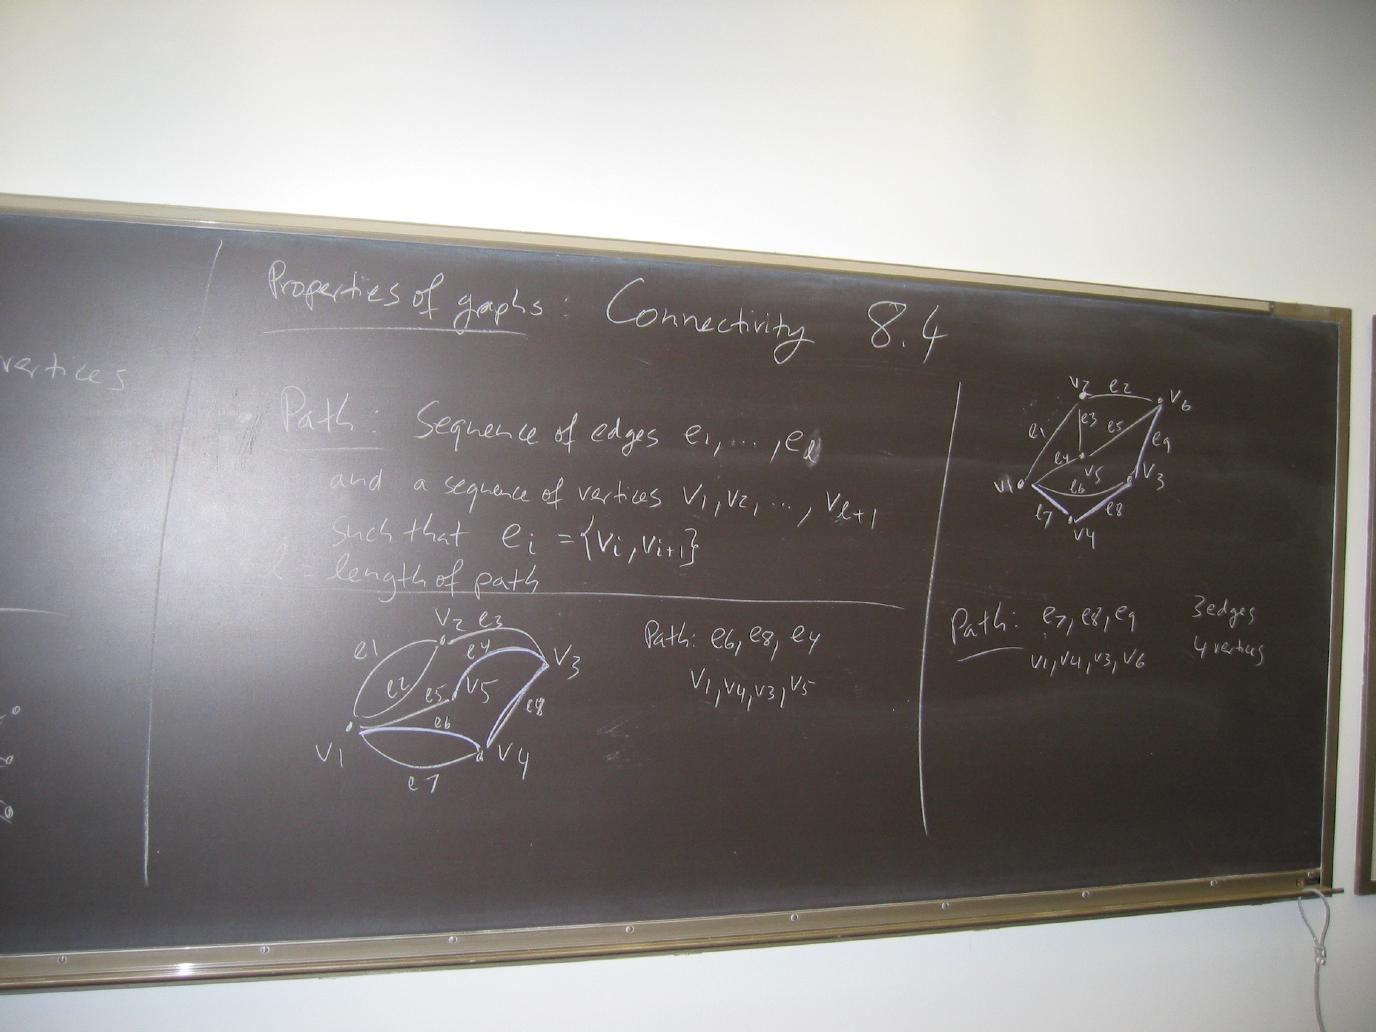 vertices
Properties of graphs: Connectivity 8.4
Path: Sequence of edges e1, ..., el
and a sequence of vertices v1, v2, ..., vl+1
such that ei = {vi, vi+1}
l = length of path
v2 e3
e1 e4 v3
e2 e5 v5
e6 e8
v1 v4
e7
Path: e6, e8, e4
v1, v4, v3, v5
v2 e2 v6
e1 e3 e5 e9
e4 v5
v1 e6 v3
e7 e8
v4
Path: e7, e8, e9 3 edges
v1, v4, v3, v6 4 vertices